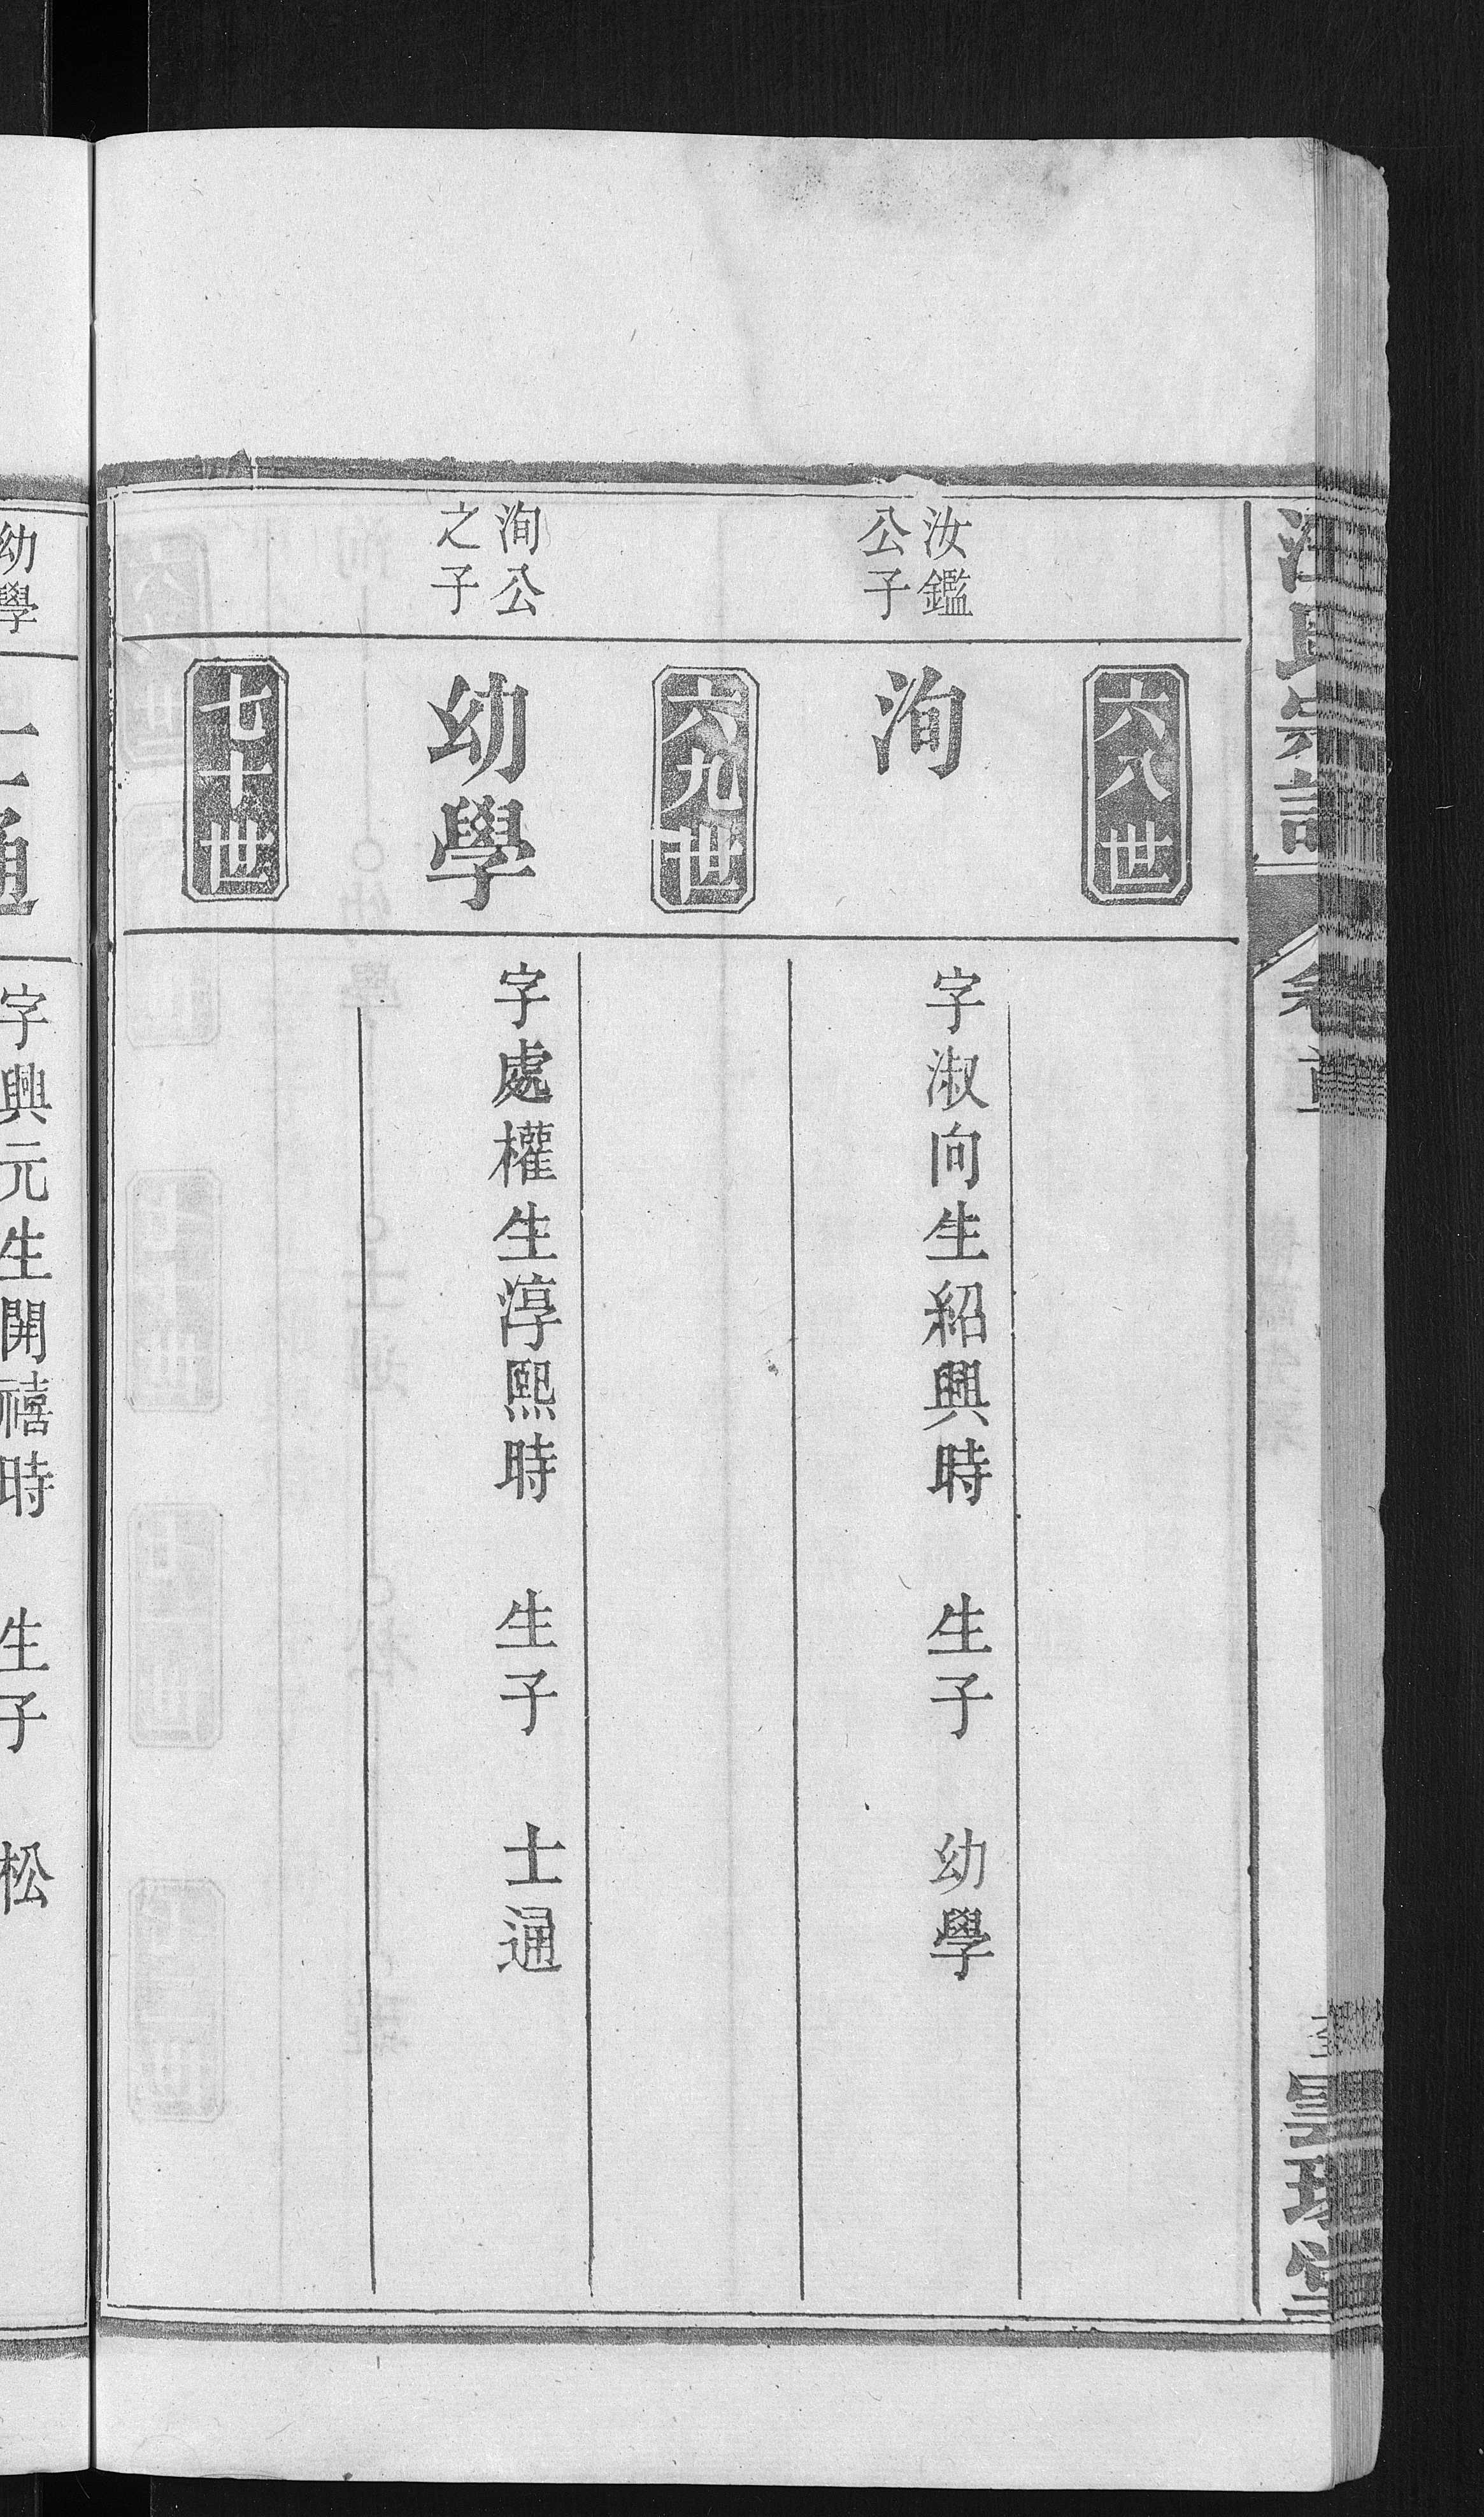 六八世
汝鑑
公子
洵
字淑向生紹興時 生子 幼學
六九世
洵公
之子
幼學
字處權生淳熙時 生子 士通
七十世
幼學
士通
字興元生開禧時 生子 松